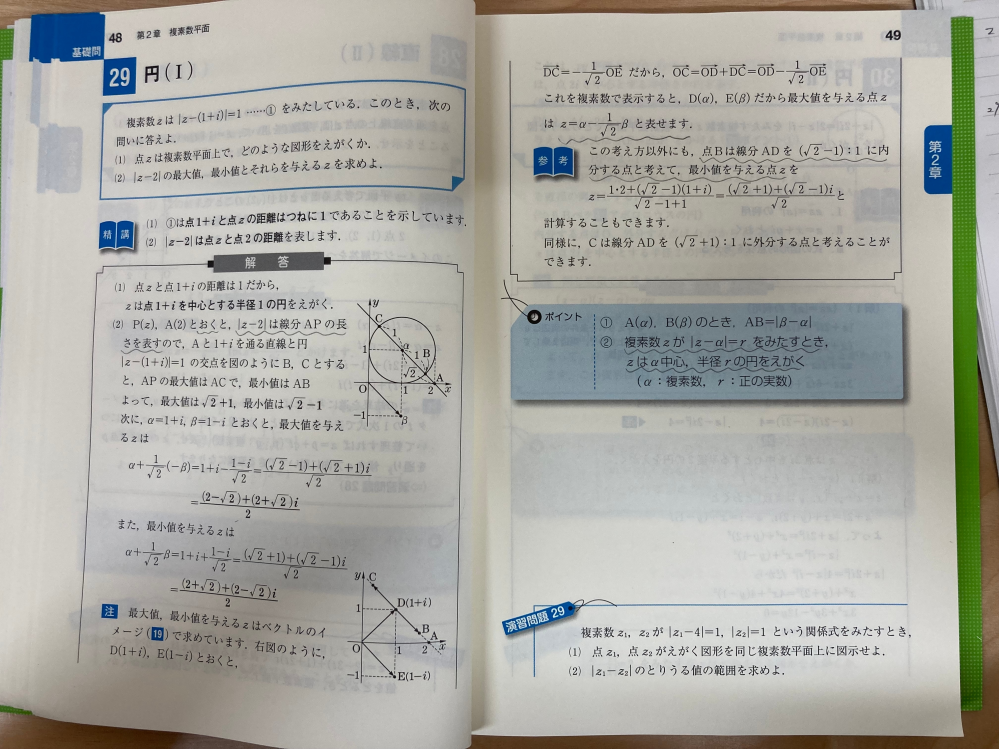 基礎問
48 第2章 複素数平面
29 円(Ⅰ)
複素数 z は |z-(1+i)|=1 ……① をみたしている．このとき，次の
問いに答えよ．
(1) 点 z は複素数平面上で，どのような図形をえがくか．
(2) |z-2| の最大値，最小値とそれらを与える z を求めよ．
精講
(1) ①は点 1+i と点 z の距離はつねに 1 であることを示しています．
(2) |z-2| は点 z と点 2 の距離を表します．
解答
(1) 点 z と点 1+i の距離は 1 だから，
z は点 1+i を中心とする半径 1 の円をえがく．
(2) P(z)，A(2) とおくと，|z-2| は線分 AP の長
さを表すので，A と 1+i を通る直線と円
|z-(1+i)|=1 の交点を図のように B，C とする
と，AP の最大値は AC で，最小値は AB
よって，最大値は √2+1，最小値は √2-1
次に，α=1+i，β=1-i とおくと，最大値を与え
る z は
α+1/√2(-β)=1+i-(1-i)/√2=((√2-1)+(√2+1)i)/√2
=((2-√2)+(2+√2)i)/2
また，最小値を与える z は
α+1/√2β=1+i+(1-i)/√2=((√2+1)+(√2-1)i)/√2
=((2+√2)+(2-√2)i)/2
y
C
1
α
1
1
B
√2
A
O
1
2
x
-1
β
注 最大値，最小値を与える z はベクトルのイ
メージ(19)で求めています．右図のように，
D(1+i)，E(1-i) とおくと，
y
C
1
D(1+i)
B
A
O
1
2
x
-1
E(1-i)
49
第2章
DC→=-1/√2 OE→ だから，OC→=OD→+DC→=OD→-1/√2 OE→
これを複素数で表示すると，D(α)，E(β) だから最大値を与える点 z
は z=α-1/√2β と表せます．
参考
この考え方以外にも，点 B は線分 AD を (√2-1)：1 に内
分する点と考えて，最小値を与える点 z を
z=(1・2+(√2-1)(1+i))/(√2-1+1)=((√2+1)+(√2-1)i)/√2 と
計算することもできます．
同様に，C は線分 AD を (√2+1)：1 に外分する点と考えることが
できます．
ポイント
① A(α)，B(β) のとき，AB=|β-α|
② 複素数 z が |z-α|=r をみたすとき，
z は α 中心，半径 r の円をえがく
(α：複素数，r：正の実数)
演習問題 29
複素数 z₁，z₂ が |z₁-4|=1，|z₂|=1 という関係式をみたすとき，
(1) 点 z₁，点 z₂ がえがく図形を同じ複素数平面上に図示せよ．
(2) |z₁-z₂| のとりうる値の範囲を求めよ．